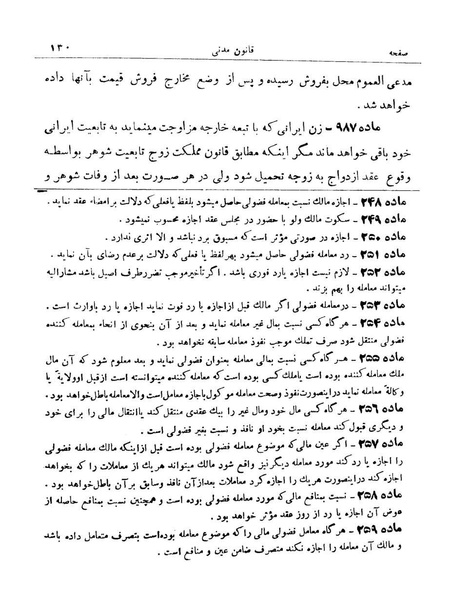 صفحه قانون مدنی ۱۳۰
مدعی العموم محل بفروش رسیده و پس از وضع مخارج فروش قیمت بآنها داده
خواهد شد .
ماده ۹۸۷ - زن ایرانی که با تبعه خارجه مزاوجت مینماید به تابعیت ایرانی
خود باقی خواهد ماند مگر اینکه مطابق قانون مملکت زوج تابعیت شوهر بواسطه
وقوع عقد ازدواج به زوجه تحمیل شود ولی در هر صورت بعد از وفات شوهر و
ماده ۲۴۸ - اجازه مالك نسبت بمعامله فضولی حاصل میشود بلفظ یافعلی که دلالت بر امضاء عقد نماید .
ماده ۲۴۹ - سکوت مالك ولو با حضور در مجلس عقد اجازه محسوب نمیشود .
ماده ۲۵۰ - اجازه در صورتی مؤثر است که مسبوق برد نباشد و الا اثری ندارد .
ماده ۲۵۱ - رد معامله فضولی حاصل میشود بهر لفظ یا فعلی که دلالت بر عدم رضای بآن نماید .
ماده ۲۵۲ - لازم نیست اجازه یارد فوری باشد . اگر تأخیر موجب تضرر طرف اصیل باشد مشارالیه
میتواند معامله را بهم بزند .
ماده ۲۵۳ - در معامله فضولی اگر مالك قبل از اجازه یا رد فوت نماید اجازه یا رد باوارث است .
ماده ۲۵۴ - هر گاه کسی نسبت بمال غیر معامله نماید و بعد از آن بنحوی از انحاء بمعامله کننده
فضولی منتقل شود صرف تملك موجب نفوذ معامله سابقه نخواهد بود .
ماده ۲۵۵ - هر گاه کسی نسبت بمالی معامله بعنوان فضولی نماید و بعد معلوم شود که آن مال
ملك معامله کننده بوده است یاملك کسی بوده است که معامله کننده میتوانسته است از قبل اوولایة یا
وکالة معامله نماید در اینصورت نفوذ وصحت معامله موکول باجازه معامل است والا معامله باطل خواهد بود .
ماده ۲۵۶ - هر گاه کسی مال خود ومال غیر را بیك عقدی منتقل کند یاانتقال مالی را برای خود
و دیگری قبول کند معامله نسبت بخود او نافذ و نسبت بغیر فضولی است .
ماده ۲۵۷ - اگر عین مالی که موضوع معامله فضولی بوده است قبل از اینکه مالك معامله فضولی
را اجازه یا رد کند مورد معامله دیگر نیز واقع شود مالك میتواند هر یك از معاملات را که بخواهد
اجازه کند در اینصورت هر یك را اجازه کرد معاملات بعد از آن نافذ وسابق بر آن باطل خواهد بود .
ماده ۲۵۸ - نسبت بمنافع مالی که مورد معامله فضولی بوده است و همچنین نسبت بمنافع حاصله از
عوض آن اجازه یا رد از روز عقد مؤثر خواهد بود .
ماده ۲۵۹ - هر گاه معامل فضولی مالی را که موضوع معامله بوده است بتصرف متعامل داده باشد
و مالك آن معامله را اجازه نکند متصرف ضامن عین و منافع است .